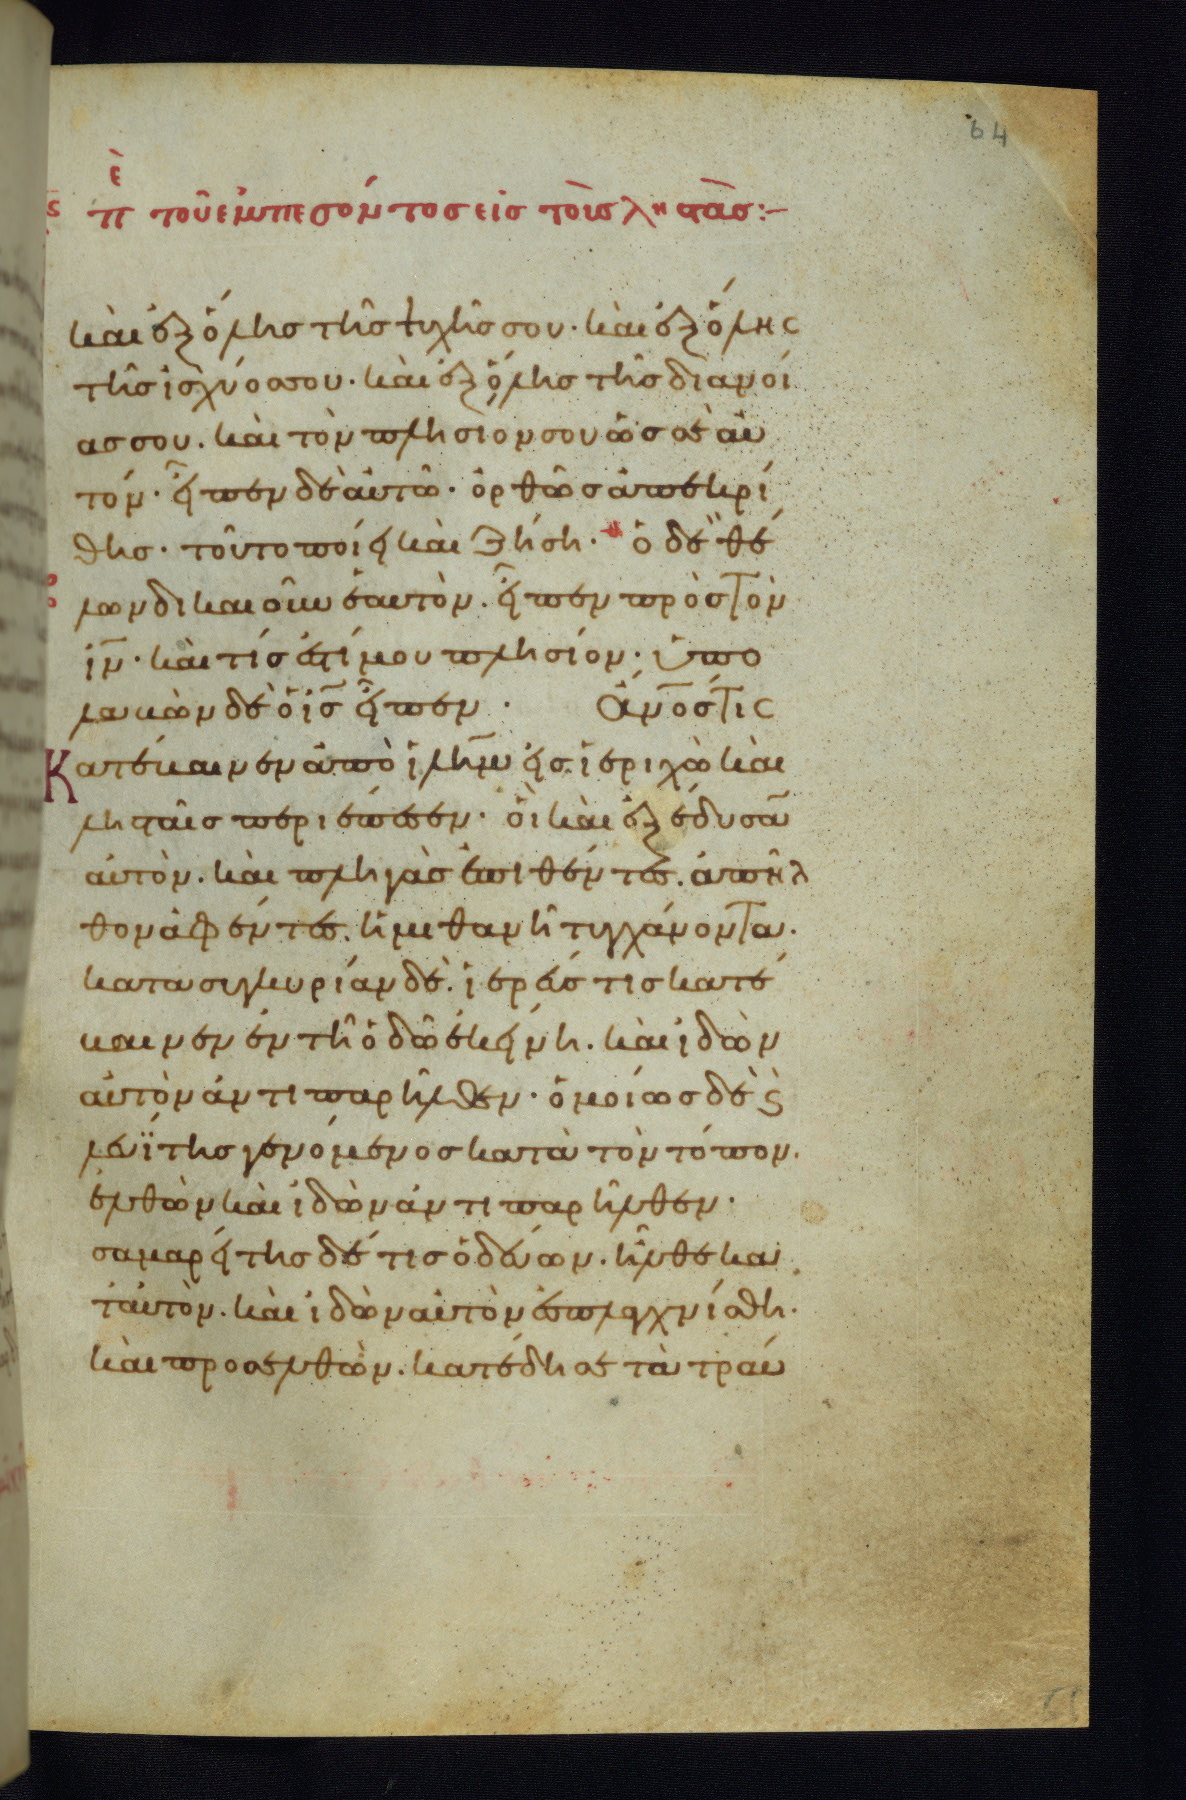 64
πε τοῦ ἐμπεσόντος εἰς τοὺς ληστάς:–
καὶ ἐξ ὅλης τῆς ψυχῆς σου· καὶ ἐξ ὅλης
τῆς ἰσχύος σου· καὶ ἐξ ὅλης τῆς διανοί
ας σου. καὶ τὸν πλησίον σου ὡς σεαυ
τόν· εἶπεν δὲ αὐτῶ· ὀρθῶς ἀπεκρί
θης· τοῦτο ποίει καὶ ζήση· ὁ δὲ θέ
λων δικαιοῦν ἑαυτὸν. εἶπεν πρὸς τὸν
ιν· καὶ τίς ἐστί μου πλησίον· ὑπο
λαβὼν δὲ ὁ ις εἶπεν· ἄνος τις
Κατέβαινεν ἀπὸ ιλημ εἰς ἱεριχὼ καὶ
λησταῖς περιέπεσεν· οἳ καὶ ἐξέδυσαν
αὐτὸν. καὶ πληγὰς ἐπιθέντες. ἀπῆλ
θον ἀφέντες. ἡμιθανῆ τυγχάνοντα.
κατα συγκυρίαν δὲ. ἱερεύς τις κατέ
βαινεν ἐν τῆ ὁδῶ ἐκείνη. καὶ ἰδὼν
αὐτὸν ἀντιπαρῆλθεν· ὁμοίως δὲ καὶ
λευΐτης γενόμενος κατὰ τὸν τόπον.
ἐλθὼν καὶ ἰδὼν ἀντιπαρῆλθεν·
σαμαρείτης δέ τις ὁδεύων. ἦλθε κα
τ' αὐτὸν. καὶ ἰδὼν αὐτὸν ἐσπλαγχνίσθη.
καὶ προσελθὼν. κατέδησε τὰ τραύ